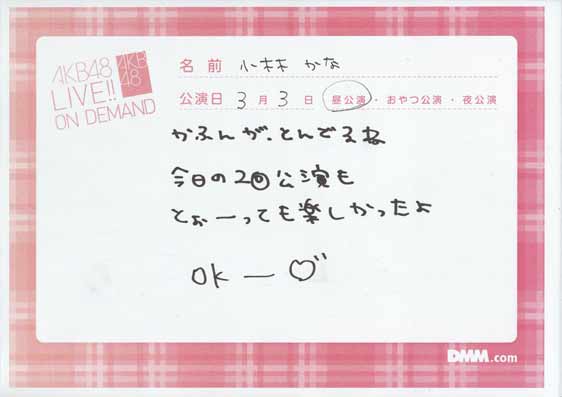 AKB48
LIVE!!
ON DEMAND
AKB
48
名前 小林 かな
公演日 3月3日 昼公演・おやつ公演・夜公演
かふんが、とんでるね
今日の2回公演も
とぉーっても楽しかったよ
OKー♡
DMM.com